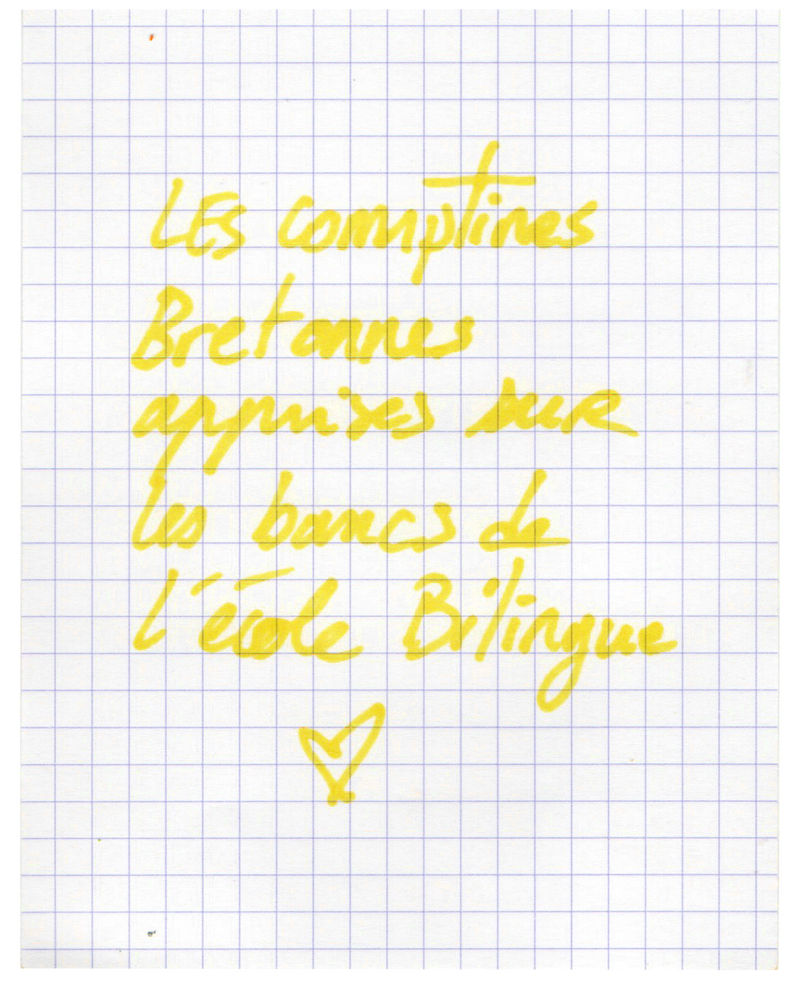 LES comptines
Bretonnes
apprises sur
les bancs de
l'école Bilingue